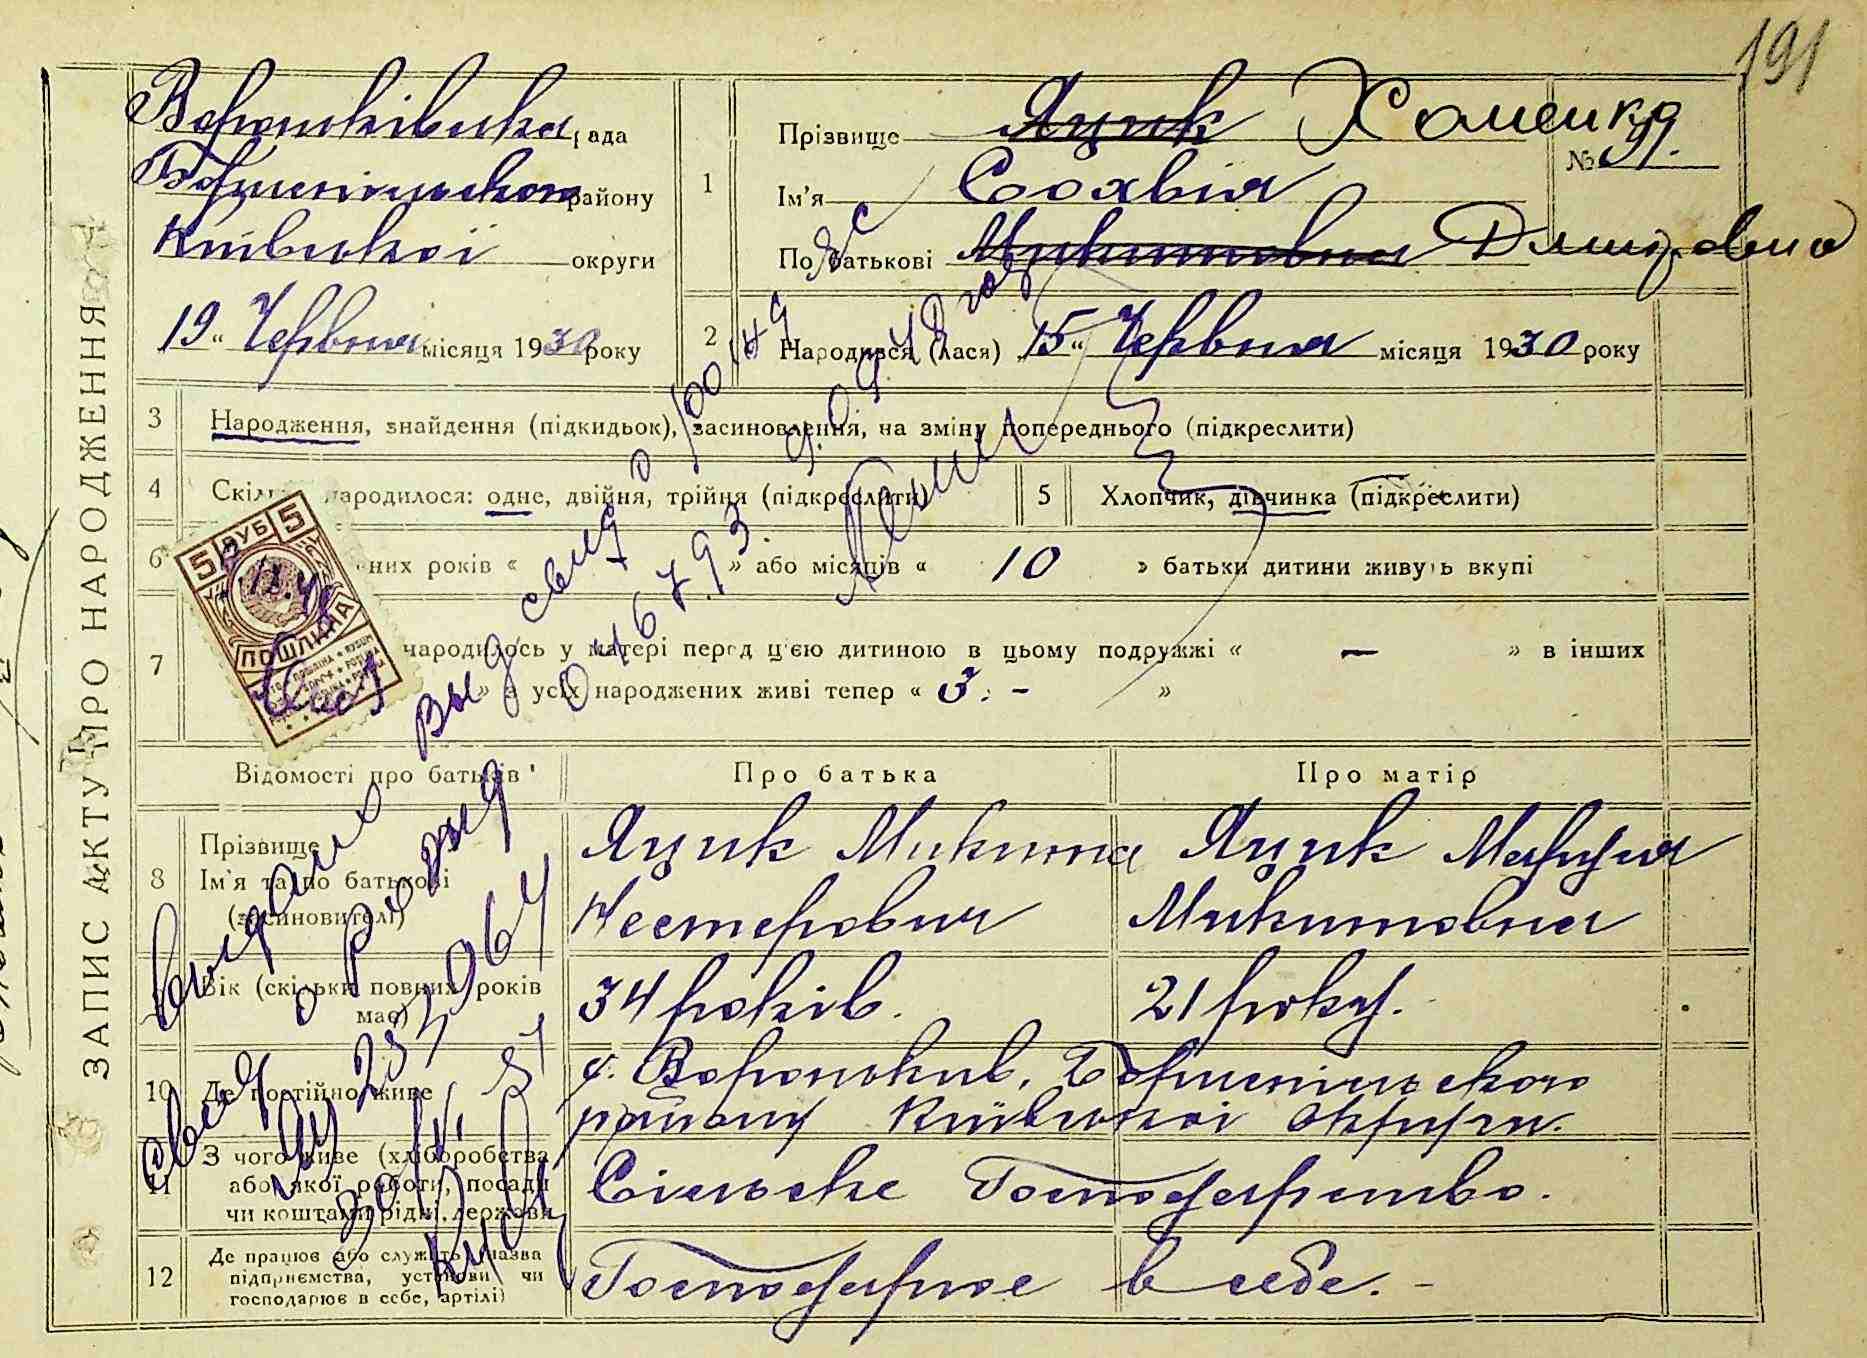 191
Вороньківська рада
Бориспільського району
Київської округи
19 " Червня місяця 1930 року
1 Прізвище Яцик Хоменко
№ 91.
Ім'я Соохвія
По батькові Микитовна Дмитровна
2 Народився (лася) „15" Червня місяця 1930 року
ЗАПИС АКТУ ПРО НАРОДЖЕННЯ
3 Народження, знайдення (підкидьок), засиновлення, на зміну попереднього (підкреслити)
4 народилося: одне, двійня, трійня (підкреслити)
5 Хлопчик, дівчинка (підкреслити)
6 них років « » або місяців « 10 » батьки дитини живуть вкупі
7 народилось у матері перед ц'єю дитиною в цьому подружжі « — » в інших
» з усіх народжених живі тепер « 3. - »
5 РУБ 5
ПОШЛІНА
Відомості про батьків
Про батька
Про матір
8 Прізвище
Ім'я та по батькові
(засиновителі)
Яцик Микита
Нестерович
Яцик Марфуша
Микитовна
Вік (скільки повних років має)
34 років.
21 року.
10 Де постійно живе
с. Вороньків, Бориспільського
району Київської округи.
11 З чого живе (хліборобства
або якої роботи, посади
чи коштами рідні, держави
Сільське Господарство.
12 Де працює або служить (назва
підприємства, установи чи
господарює в себе, артілі)
Господарює в себе. -
выд свид о
9.09.48 год
свид о рожд